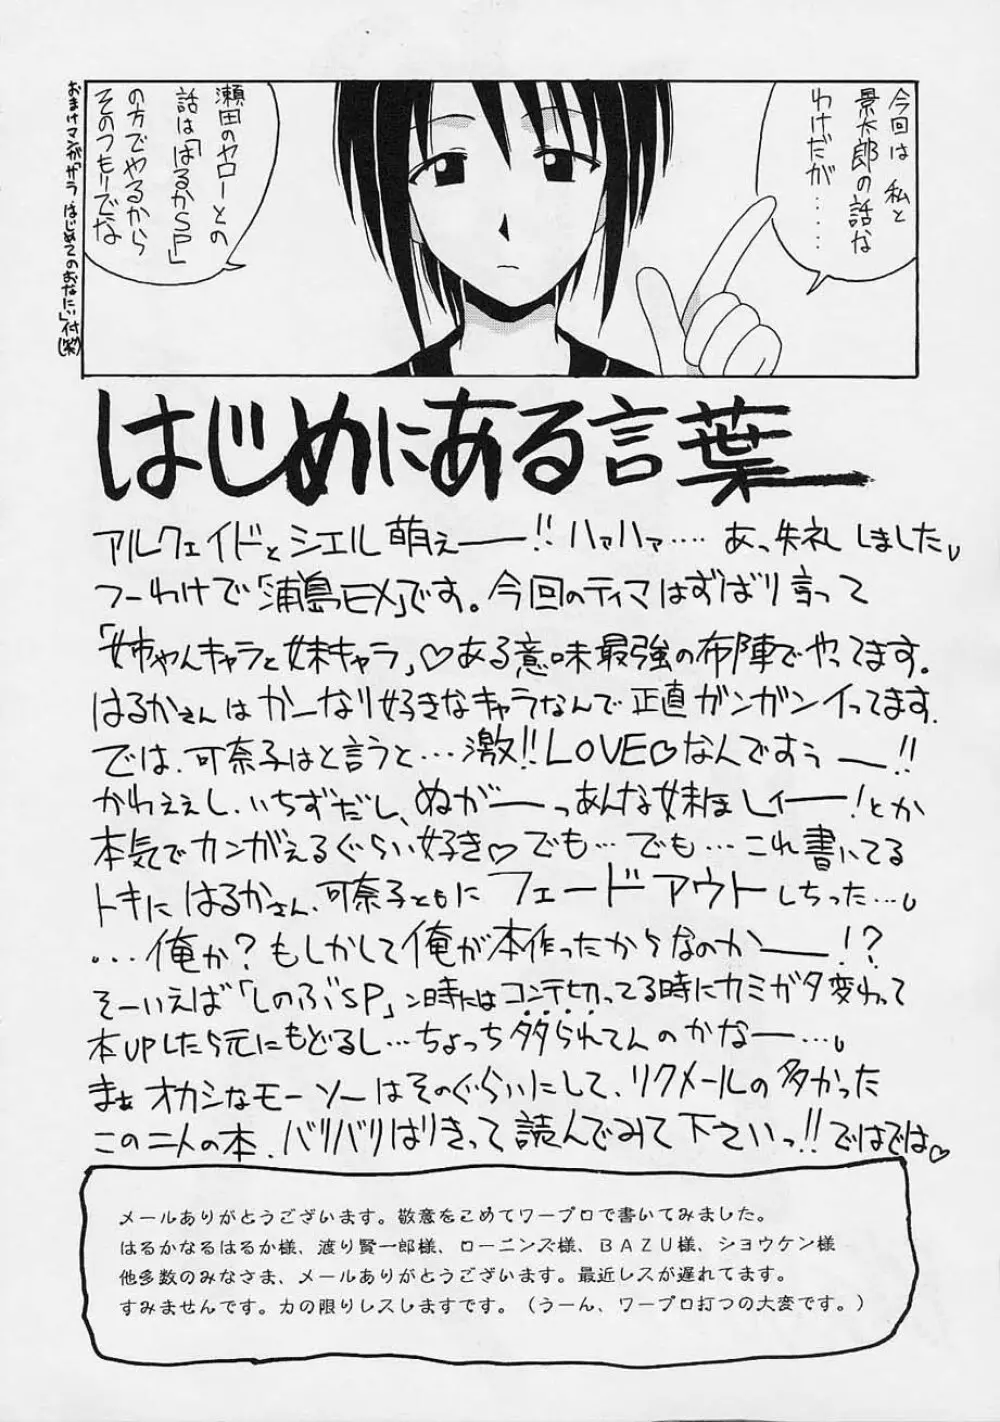 今回は 私と
景太郎の話な
わけだが‥‥‥
瀬田のヤローとの
話は「はるかSP」
の方でやるから
そのつもりでな
おまけマンガ「サラ はじめてのおなにい」付(笑)
はじめにある言葉
アルクェイドとシエル萌えー!! ハァハァ‥‥ あっ失礼しました
つーわけで「浦島EX」です。今回のティマはずばり言って
「姉ちゃんキャラと妹キャラ」♡ある意味最強の布陣でやってます。
はるかさんはかーなり好きなキャラなんで正直ガンガンイってます.
では、可奈子はと言うと…激!!LOVE♡なんですぅー!!
かわええし、いちずだし、ぬがーっあんな妹ほしィー!とか
本気でカンがえるぐらい好き♡でも…でも…これ書いてる
トキにはるかさん、可奈子ともにフェードアウトしちった…
…俺か?もしかして俺が本作ったからなのかー!?
そーいえば「しのぶSP」ン時にはコンテ切ってる時にカミガタ変わって
本UPしたら元にもどるし…ちょっち祟られてんのかなー…
まぁオカシなモーソーはそのぐらいにして、リクメールの多かった
この二人の本、バリバリはりきって読んでみて下さいっ!!ではでは♡
メールありがとうございます。敬意をこめてワープロで書いてみました。
はるかなるはるか様、渡り賢一郎様、ローニンズ様、BAZU様、ショウケン様
他多数のみなさま、メールありがとうございます。最近レスが遅れてます。
すみませんです。力の限りレスしますです。（うーん、ワープロ打つの大変です。）